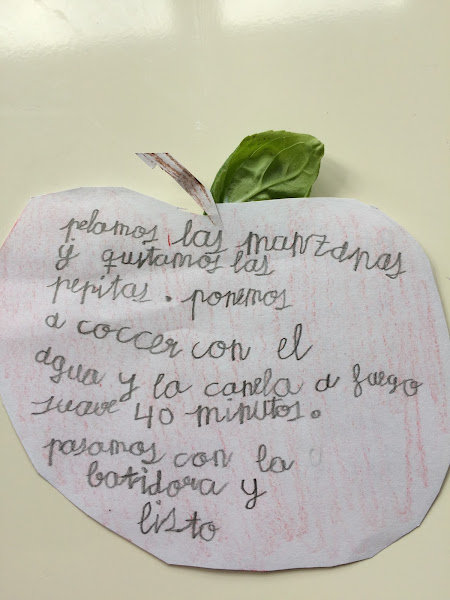 pelamos las manzanas
y quitamos las
pepitas. ponemos
a coccer con el
agua y la canela a fuego
suave 40 minutos.
pasamos con la
batidora y
listo